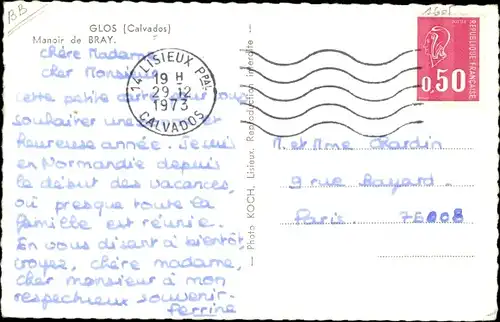 BB
1605
GLOS (Calvados)
Manoir de BRAY.
chère Madame
cher Monsieur
cette petite carte pour vous
souhaiter une bonne et
heureuse année. Je suis
en Normandie depuis
le début des vacances,
où presque toute la
famille est réunie.
En vous disant à bientôt,
croyez, chère madame,
cher monsieur à mon
respectueux souvenir.
Perrine
14 LISIEUX Ppal
19 H
29-12
1973
CALVADOS
— Photo KOCH, Lisieux. Reproduction interdite —
REPUBLIQUE FRANÇAISE
0,50
M. et Mme Chardin
9 rue Bayard.
Paris. 75008